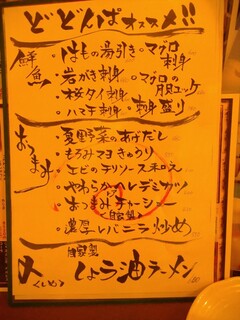 どどんぱオススメ!!
鮮魚
・はもの湯引き ・マグロ刺身
・岩がき刺身 ・マグロの腹ユッケ
・桜タイ刺身
・ハマチ刺身 ・刺身盛り
おつまみ
・夏野菜のあげだし
・もろみマヨきゅうり
・エビのチリソース和え
・やわらかハムレデミカツ
・おつまみチャーシュー
(自家製)
・濃厚レバニラ炒め
〆
<しめ>
自家製
しょう油ラーメン